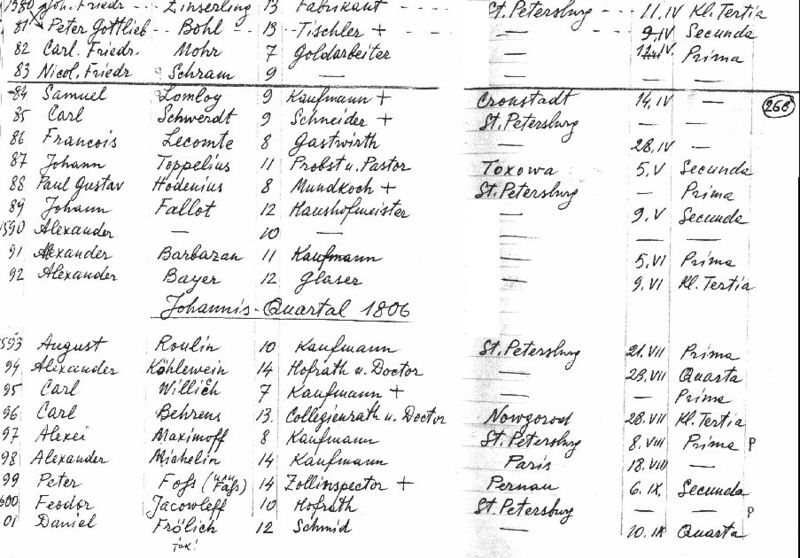 1580 Joh. Friedr. Zinserling 13 Fabrikant St. Petersburg 11. IV Kl. Tertia
81 Peter Gottlieb Bohl 13 Tischler + — 9. IV Secunda
82 Carl. Friedr. Mohr 7 Goldarbeiter — IV Prima
83 Nicol. Friedr Schram 9 — — — —
84 Samuel Lomloy 9 Kaufmann + Cronstadt 14. IV —
85 Carl Schwerdt 9 Schneider + St. Petersburg — — 266
86 Francois Lecomte 8 Gastwirth — 28. IV —
87 Johann Toppelius 11 Probst u. Pastor Toxowa 5. V Secunda
88 Paul Gustav Hodenius 8 Mundkoch + St. Petersburg — Prima
89 Johann Fallot 12 Haushofmeister — 9. V Secunda
1590 Alexander — 10 — — — —
91 Alexander Barbazan 11 Kaufmann — 5. VI Prima
92 Alexander Bayer 12 Glaser — 9. VI Kl. Tertia
Johannis-Quartal 1806
1593 August Roulin 10 Kaufmann St. Petersburg 21. VII Prima
94 Alexander Köhlewein 14 Hofrath u. Doctor — 23. VII Quarta
95 Carl Willich 7 Kaufmann + — — Prima
96 Carl Behrens 13. Collegienrath u. Doctor Nowgorod 28. VII Kl. Tertia
97 Alexei Maximoff 8 Kaufmann St. Petersburg 8. VIII Prima P
98 Alexander Michelin 14 Kaufmann Paris 18. VIII —
99 Peter Foß 14 Zollinspector + Pernau 6. IX. Secunda
600 Feodor Jacowleff 10 Hofrath St. Petersburg — — P
01 Daniel Frölich 12 Schmid — 10. IX Quarta
так!